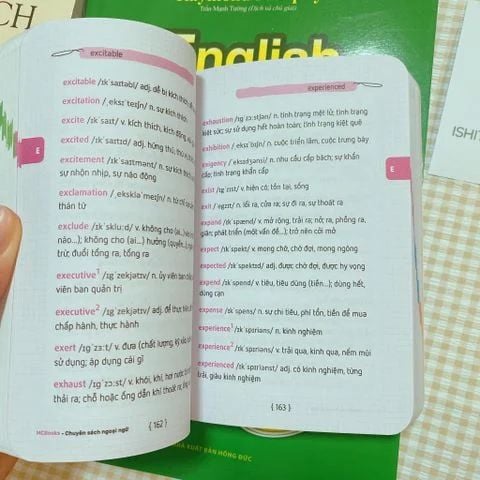 Trần Mạnh Tường (Dịch và chú giải)
English
excitable
excitable /ɪkˈsaɪtəbl/ adj. dễ bị kích thích
excitation /ˌeksɪˈteɪʃn/ n. sự kích
excite /ɪkˈsaɪt/ v. kích thích, kích động
excited /ɪkˈsaɪtɪd/ adj. hứng thú,
excitement /ɪkˈsaɪtmənt/ n. sự kích thích
sự nhộn nhịp, sự náo động
exclamation /ˌekskləˈmeɪʃn/ n. từ chỉ
thán từ
exclude /ɪkˈskluːd/ v. không cho (ai...)
nào...); không cho (ai...) hưởng (quyền...)
trừ; đuổi tống ra, tống ra
executive¹ /ɪɡˈzekjətɪv/ n. ủy viên ban
viên ban quản trị
executive² /ɪɡˈzekjətɪv/ adj. để thực
chấp hành, thực hành
exert /ɪɡˈzɜːt/ v. đưa (chất lượng, kỹ
sử dụng; áp dụng cái gì
exhaust /ɪɡˈzɔːst/ v. khói, khí, hơi nước
thải ra; chỗ hoặc ống dẫn khí thoát ra
E
MCBooks - Chuyên sách ngoại ngữ
{ 162 }
experienced
exhaustion /ɪɡˈzɔːstʃən/ n. tình trạng mệt lử; tình trạng
kiệt sức; sự sử dụng hết hoàn toàn; tình trạng kiệt quệ
exhibition /ˌeksɪˈbɪʃn/ n. cuộc triển lãm, cuộc trưng bày
exigency /ˈeksɪdʒənsi/ n. nhu cầu cấp bách; sự khẩn
cấp; tình trạng khẩn cấp
exist /ɪɡˈzɪst/ v. hiện có; tồn tại, sống
exit /ˈeɡzɪt/ n. lối ra, cửa ra; sự đi ra, sự thoát ra
expand /ɪkˈspænd/ v. mở rộng, trải ra; nở ra, phồng ra,
giãn; phát triển (một vấn đề...); trở nên cởi mở
expect /ɪkˈspekt/ v. mong chờ, chờ đợi, mong ngóng
expected /ɪkˈspektɪd/ adj. được chờ đợi, được hy vọng
expend /ɪkˈspend/ v. tiêu, tiêu dùng (tiền...); dùng hết,
dùng cạn
expense /ɪkˈspens/ n. sự chi tiêu, phí tổn, tiền để mua
experience¹ /ɪkˈspɪriəns/ n. kinh nghiệm
experience² /ɪkˈspɪriəns/ v. trải qua, kinh qua, nếm mùi
experienced /ɪkˈspɪriənst/ adj. có kinh nghiệm, từng
trải, giàu kinh nghiệm
E
{ 163 }
NHÀ XUẤT BẢN HỒNG ĐỨC